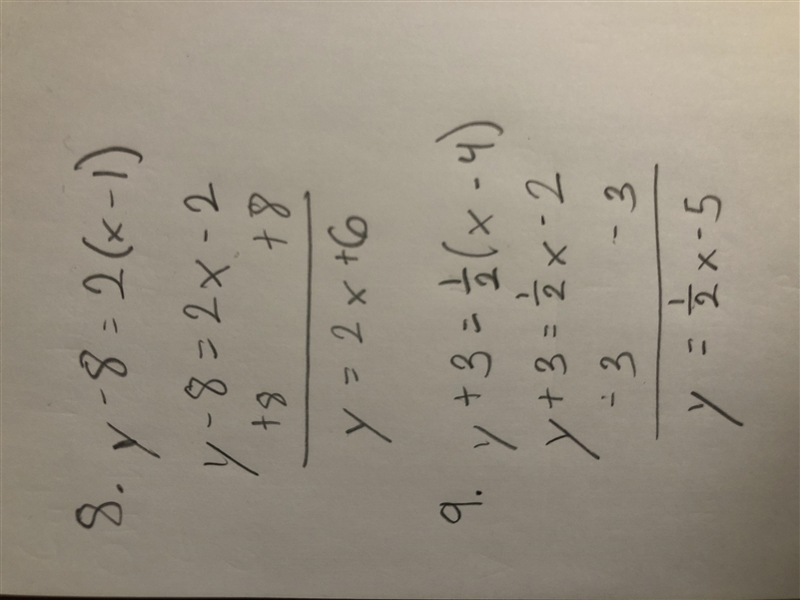 8. y - 8 = 2(x - 1)
y - 8 = 2x - 2
+8 +8
y = 2x + 6
9. y + 3 = 1/2(x - 4)
y + 3 = 1/2x - 2
- 3 - 3
y = 1/2x - 5